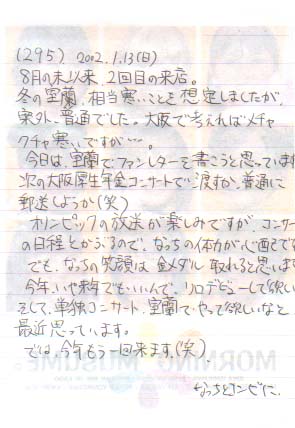 (295) 2002.1.13(日)
8月の末以来、2回目の来店。
冬の室蘭、相当寒いことを想定しましたが、
案外、普通でした。大阪で考えればメチャ
クチャ寒いですが…。
今日は、室蘭でファンレターを書こうと思っています
次の大阪厚生年金コンサートで渡すか、普通に
郵送しようか(笑)
オリンピックの放送が楽しみですが、コンサー
の日程とかぶるので、なっちの体力が心配です
でも、なっちの笑顔は金メダル取れると思いま
今年、いや来年でもいいんで、ソロデビューして欲しい
そして、単独コンサート、室蘭でやって欲しいなと
最近思っています。
では、今年もう一回来ます。(笑)
MORNING MUSUME。
なっちとコンビに。